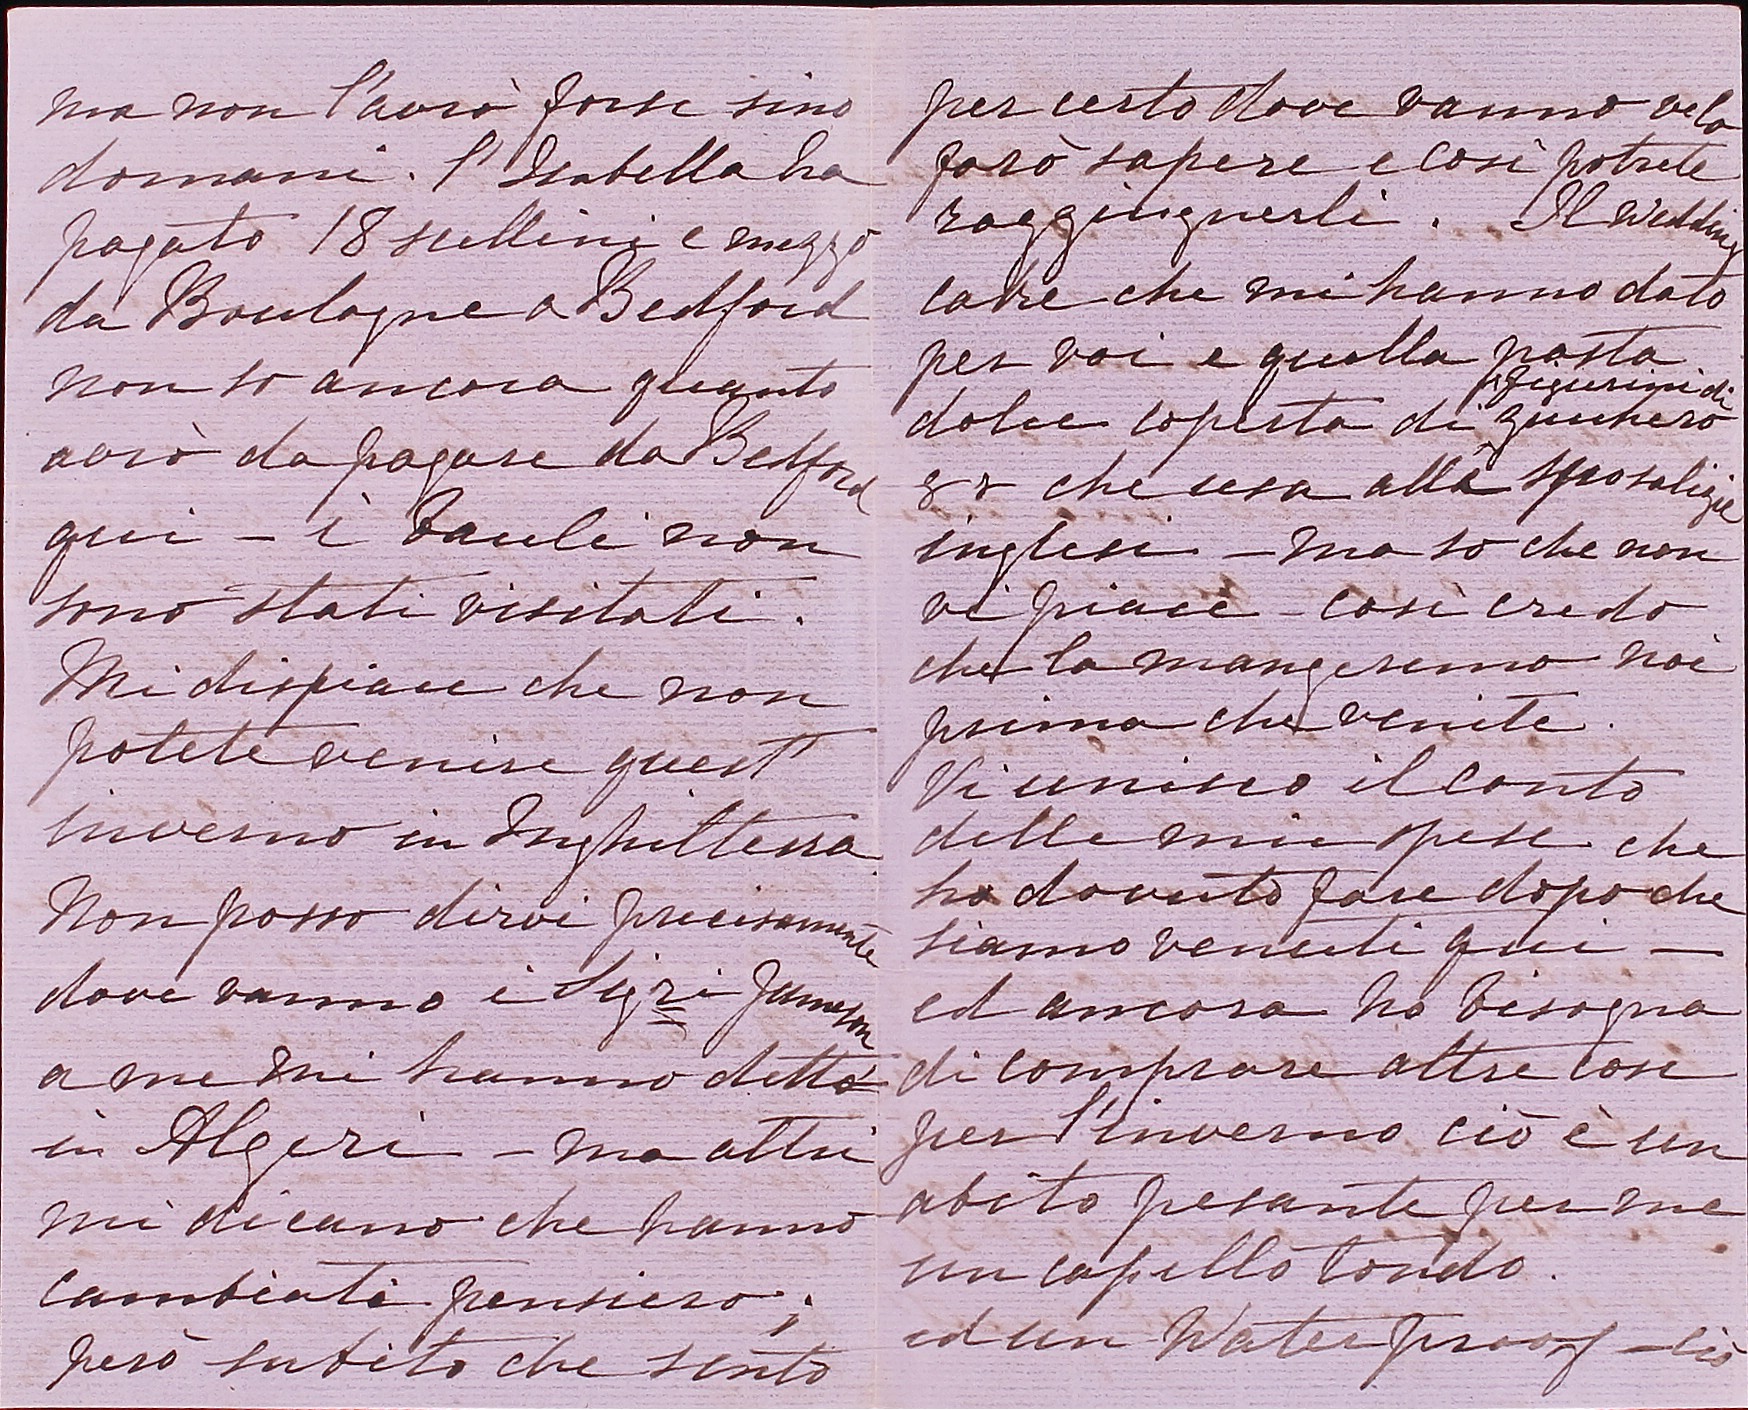 ma non l'avrò forse sino
domani. l'Isabella ha
pagato 18 scellini e mezzo
da Boulogne a Bedford
non so ancora quanto
avrò da pagare da Bedford
qui – i bauli non
sono stati visitati.
Mi dispiace che non
potete venire quest'
inverno in Inghilterra.
Non posso dirvi precisamente
dove vanno i Sigri Jameson
a me mi hanno detto
in Algeri – ma altri
mi dicano che hanno
cambiati pensiero;
però subito che sento
per certo dove vanno ve lo
farò sapere e così potrete
raggiugnerli. Il Wedding
cake che mi hanno dato
per voi e quella pasta
dolce coperta di figurini di zucchero
che usa alle sposalizie
inglesi – ma so che non
vi piace – così credo
che la mangeremo noi
prima che venite.
Vi unisco il conto
delle mie spese che
ho dovuto fare dopo che
siamo venuti qui –
ed ancora ho bisogna
di comprare altre cose
per l'inverno ciò è un
abito pesante per me
un capello tondo.
ed un Waterproof – ciò